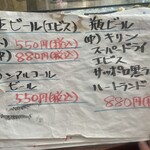 生ビール(エビス)
) 550円(税込)
中) 880円(税込)
ノンアルコール
ビール
550円(税込)
瓶ビール
(中)キリン
スーパードライ
エビス
サッポロ黒ラ
ハートランド
880円(税